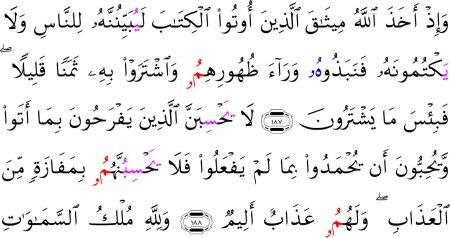 وَإِذْ أَخَذَ ٱللَّهُ مِيثَٰقَ ٱلَّذِينَ أُوتُوا۟ ٱلْكِتَٰبَ لَيُبَيِّنُنَّهُۥ لِلنَّاسِ وَلَا
يَكْتُمُونَهُۥ فَنَبَذُوهُۥ وَرَآءَ ظُهُورِهِمُۥ وَٱشْتَرَوْا۟ بِهِۦ ثَمَنًا قَلِيلًا ۖ
فَبِئْسَ مَا يَشْتَرُونَ ١٨٧ لَا يَحْسِبَنَّ ٱلَّذِينَ يَفْرَحُونَ بِمَا أَتَوا۟
وَّيُحِبُّونَ أَن يُحْمَدُوا۟ بِمَا لَمْ يَفْعَلُوا۟ فَلَا يَحْسِبُنَّهُمُۥ بِمَفَازَةٍ مِّنَ
ٱلْعَذَابِ ۖ وَلَهُمُۥ عَذَابٌ أَلِيمٌ ١٨٨ وَلِلَّهِ مُلْكُ ٱلسَّمَٰوَٰتِ